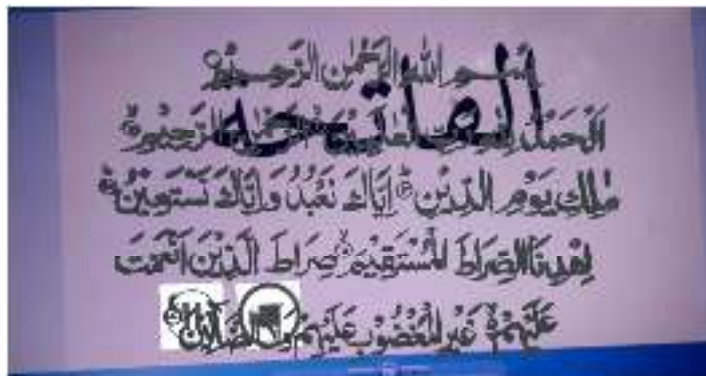 بِسْمِ اللهِ الرَّحْمٰنِ الرَّحِيْمِ
الفاتحه
اَلْحَمْدُ لِلّٰهِ رَبِّ الْعٰلَمِيْنَ الرَّحْمٰنِ الرَّحِيْمِ
مٰلِكِ يَوْمِ الدِّيْنِ اِيَّاكَ نَعْبُدُ وَاِيَّاكَ نَسْتَعِيْنُ
اِهْدِنَا الصِّرَاطَ الْمُسْتَقِيْمَ صِرَاطَ الَّذِيْنَ اَنْعَمْتَ
عَلَيْهِمْ غَيْرِ الْمَغْضُوْبِ عَلَيْهِمْ وَلَا الضَّآلِّيْنَ